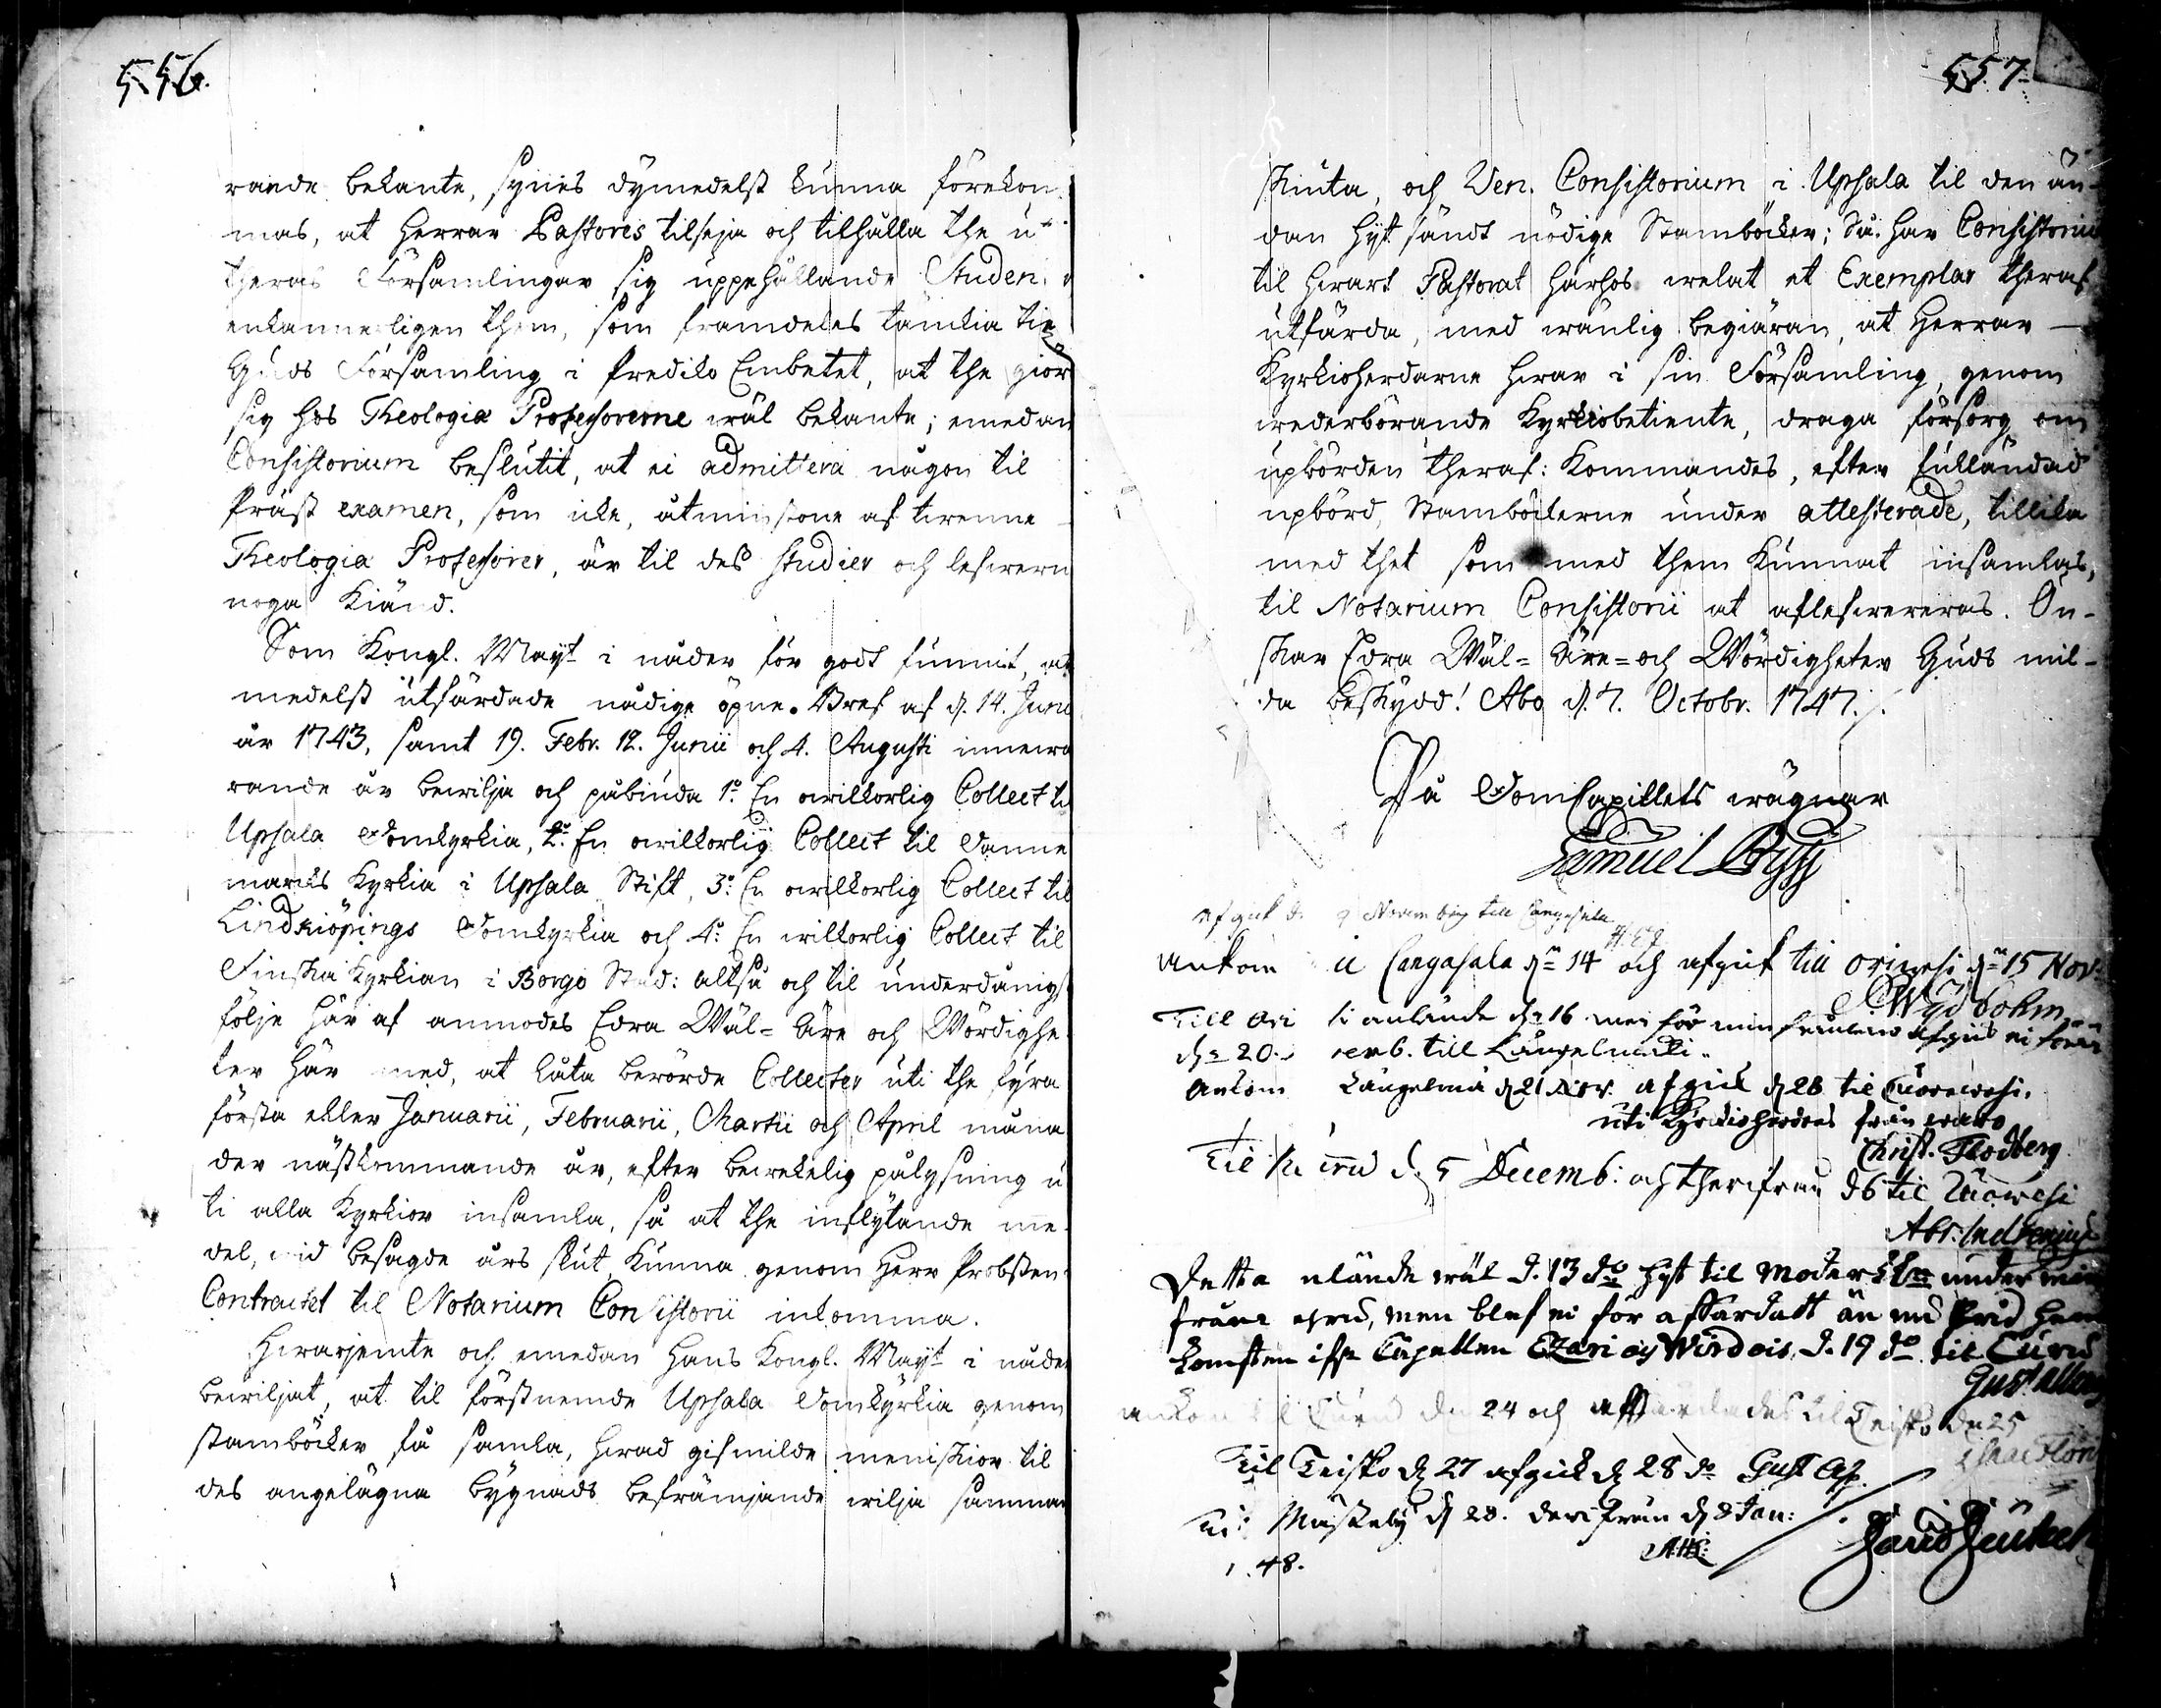 556.
rande bekante, synes dymedelst kunna förekom-
mas, at Herrar Pastores tilseja och tilhålla the u-
theras Församlingar sig uppehållande Studen
enkannerligen them, som framdeles tänckia tie
Guds Församling i Prediko Embetet, at the giör
sig hos Theologiæ Professorerne wäl bekante; emedan
Consistorium beslutit, at ei admittera någon til
Präst examen, som icke, åtminstone af twenne
Theologiæ Professorer, är til des studier och lefwern
noga Kiänd.
Som Kongl. Mayt i nåder för godt funnit, at
medelst utfärdade nådige öpne Bref af d. 14. Junii
år 1743, samt 19. Febr. 12. Junii och 4. Augusti innewa
rande år bewilja och påbiuda 1o. En owilkorlig Collect til
Upsala Domkyrkia, 2o. En owilkorlig Collect til Danne
marcks Kyrkia i Upsala Stift, 3o: En owilkorlig Collect til
Lindkiöpings Domkyrkia och 4o: En wilkorlig Collect til
Finska Kyrkian i Borgo Stad: altså och til underdånigst
följe här af anmodes Edra Wäl- Äre och Wördighe
ter här med, at låta berörde Collecter uti the fyra
första eller Januarii, Februarii, Martii och April måna
der nästkommande år, efter bewekelig pålysning u
ti alla Kyrkior insamla, så at the inflytande me-
del, wid besagde års slut, Kunna genom Herr Probsten
Contractet til Notarium Consistorii inkomma.
Hwarjemte och emedan Hans Kongl. Mayt i nåder
bewiljat, at til förstnemde Upsala Domkyrkia genom
stamböcker få samla, hwad gifmilde meniskior til
des angelägna bygnads befrämjande wilja samman
557
skiuta, och Ven. Consistorium i Upsala til den än-
dan hyt sändt nödige Stamböcker; Så har Consistorium
til hwart Pastorat härhos welat et Exemplar theraf
utfärda, med wänlig begiäran, at Herrar
Kyrkioherdarne hwar i sin Församling, genom
wederbörande Kyrkiobetiente, draga försorg om
upbörden theraf: Kommandes, efter fulländad
upbörd, Stamböckerne under attesterade, tillika
med thet som med them Kunnat insamlas,
til Notarium Consistorii at aflefwereras. Ön-
skar Edra Wäl- Äre- och Wördigheter Guds mil-
da beskydd! Abo d. 7. Octobr. 1747.
På DomCapitlets wägnar
Samuel Pryss
afgick d. 9 Novemb till Cangasala
Ankom Cangasala dn 14 och afgick till Oriwesi dn 15 Nov.
Till Ori si anlände dn 16 men för min afgick ei förr
dn 20. till Längelmäki
Ankom Längelmä d 21 Nov. afgick d 28 til Kuorewesi.
uti Kyrkioherdens frånwaro
Christ. Flodberg
Til d. 5 Decemb: och therifrån d 6 til Ruowesi
Abr. Indrenius
Detta anlände wäl d. 13 do hyt til Moder under min
fråne men blef ei för affärdatt än wid hem
komsten ifr Capellen Ätzäri och Wirdois d. 19 do til Curu
Gust
ankom til Curu den 24 och affärdades til Teisko dn 25
Til Teisko d 27 afgick d 28 do Gust
Til Mässeby d 28. derifrån d 8 Jan:
48.